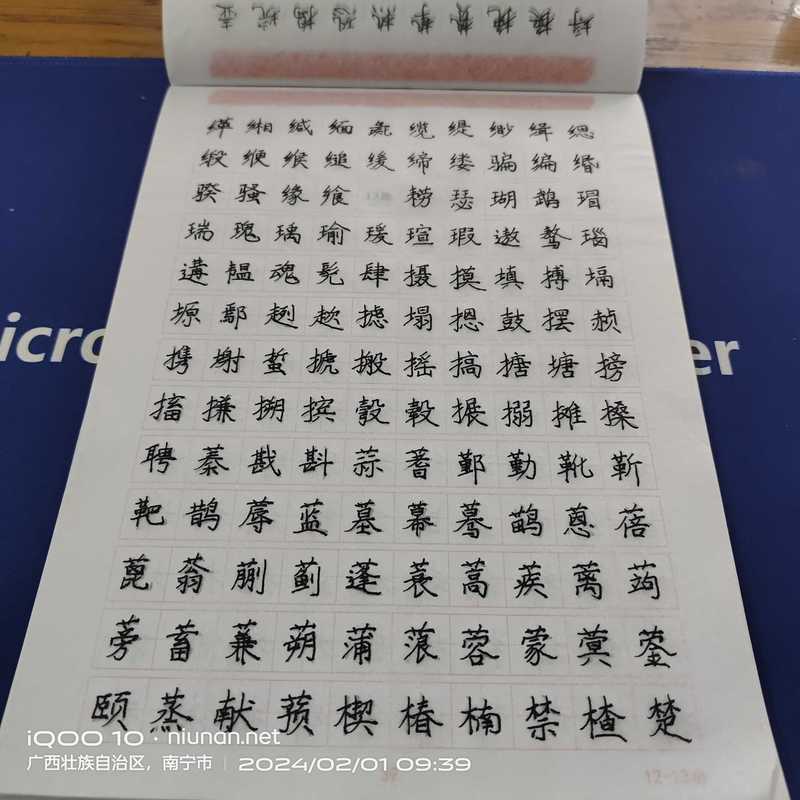 缂 缃 缄 缅 彘 缆 缇 缈 缉 缌
缎 缏 缑 缒 缓 缔 缕 骗 编 缗
骙 骚 缘 飨 13画 耢 瑟 瑚 鹉 瑁
瑞 瑰 瑀 瑜 瑗 瑄 瑕 遨 骜 瑙
遘 韫 魂 髡 肆 摄 摸 填 搏 塥
塬 鄢 趔 趑 摅 塌 摁 鼓 摆 赪
携 塮 蜇 搋 搬 摇 搞 搪 塘 搒
搐 搛 搠 摈 彀 毂 搌 搦 摊 搡
聘 蓁 戡 斟 蒜 蓍 鄞 勤 靴 靳
靶 鹊 蓐 蓝 墓 幕 蓦 鹋 蒽 蓓
蓖 蓊 蒯 蓟 蓬 蓑 蒿 蒺 蓠 蒟
蒡 蓄 蒹 蒴 蒲 蒗 蓉 蒙 蓂 蓥
颐 蒸 献 蓣 楔 椿 楠 禁 楂 楚
12-13画
icro
er
iQOO 10 · niunan.net
广西壮族自治区，南宁市 | 2024/02/01 09:39